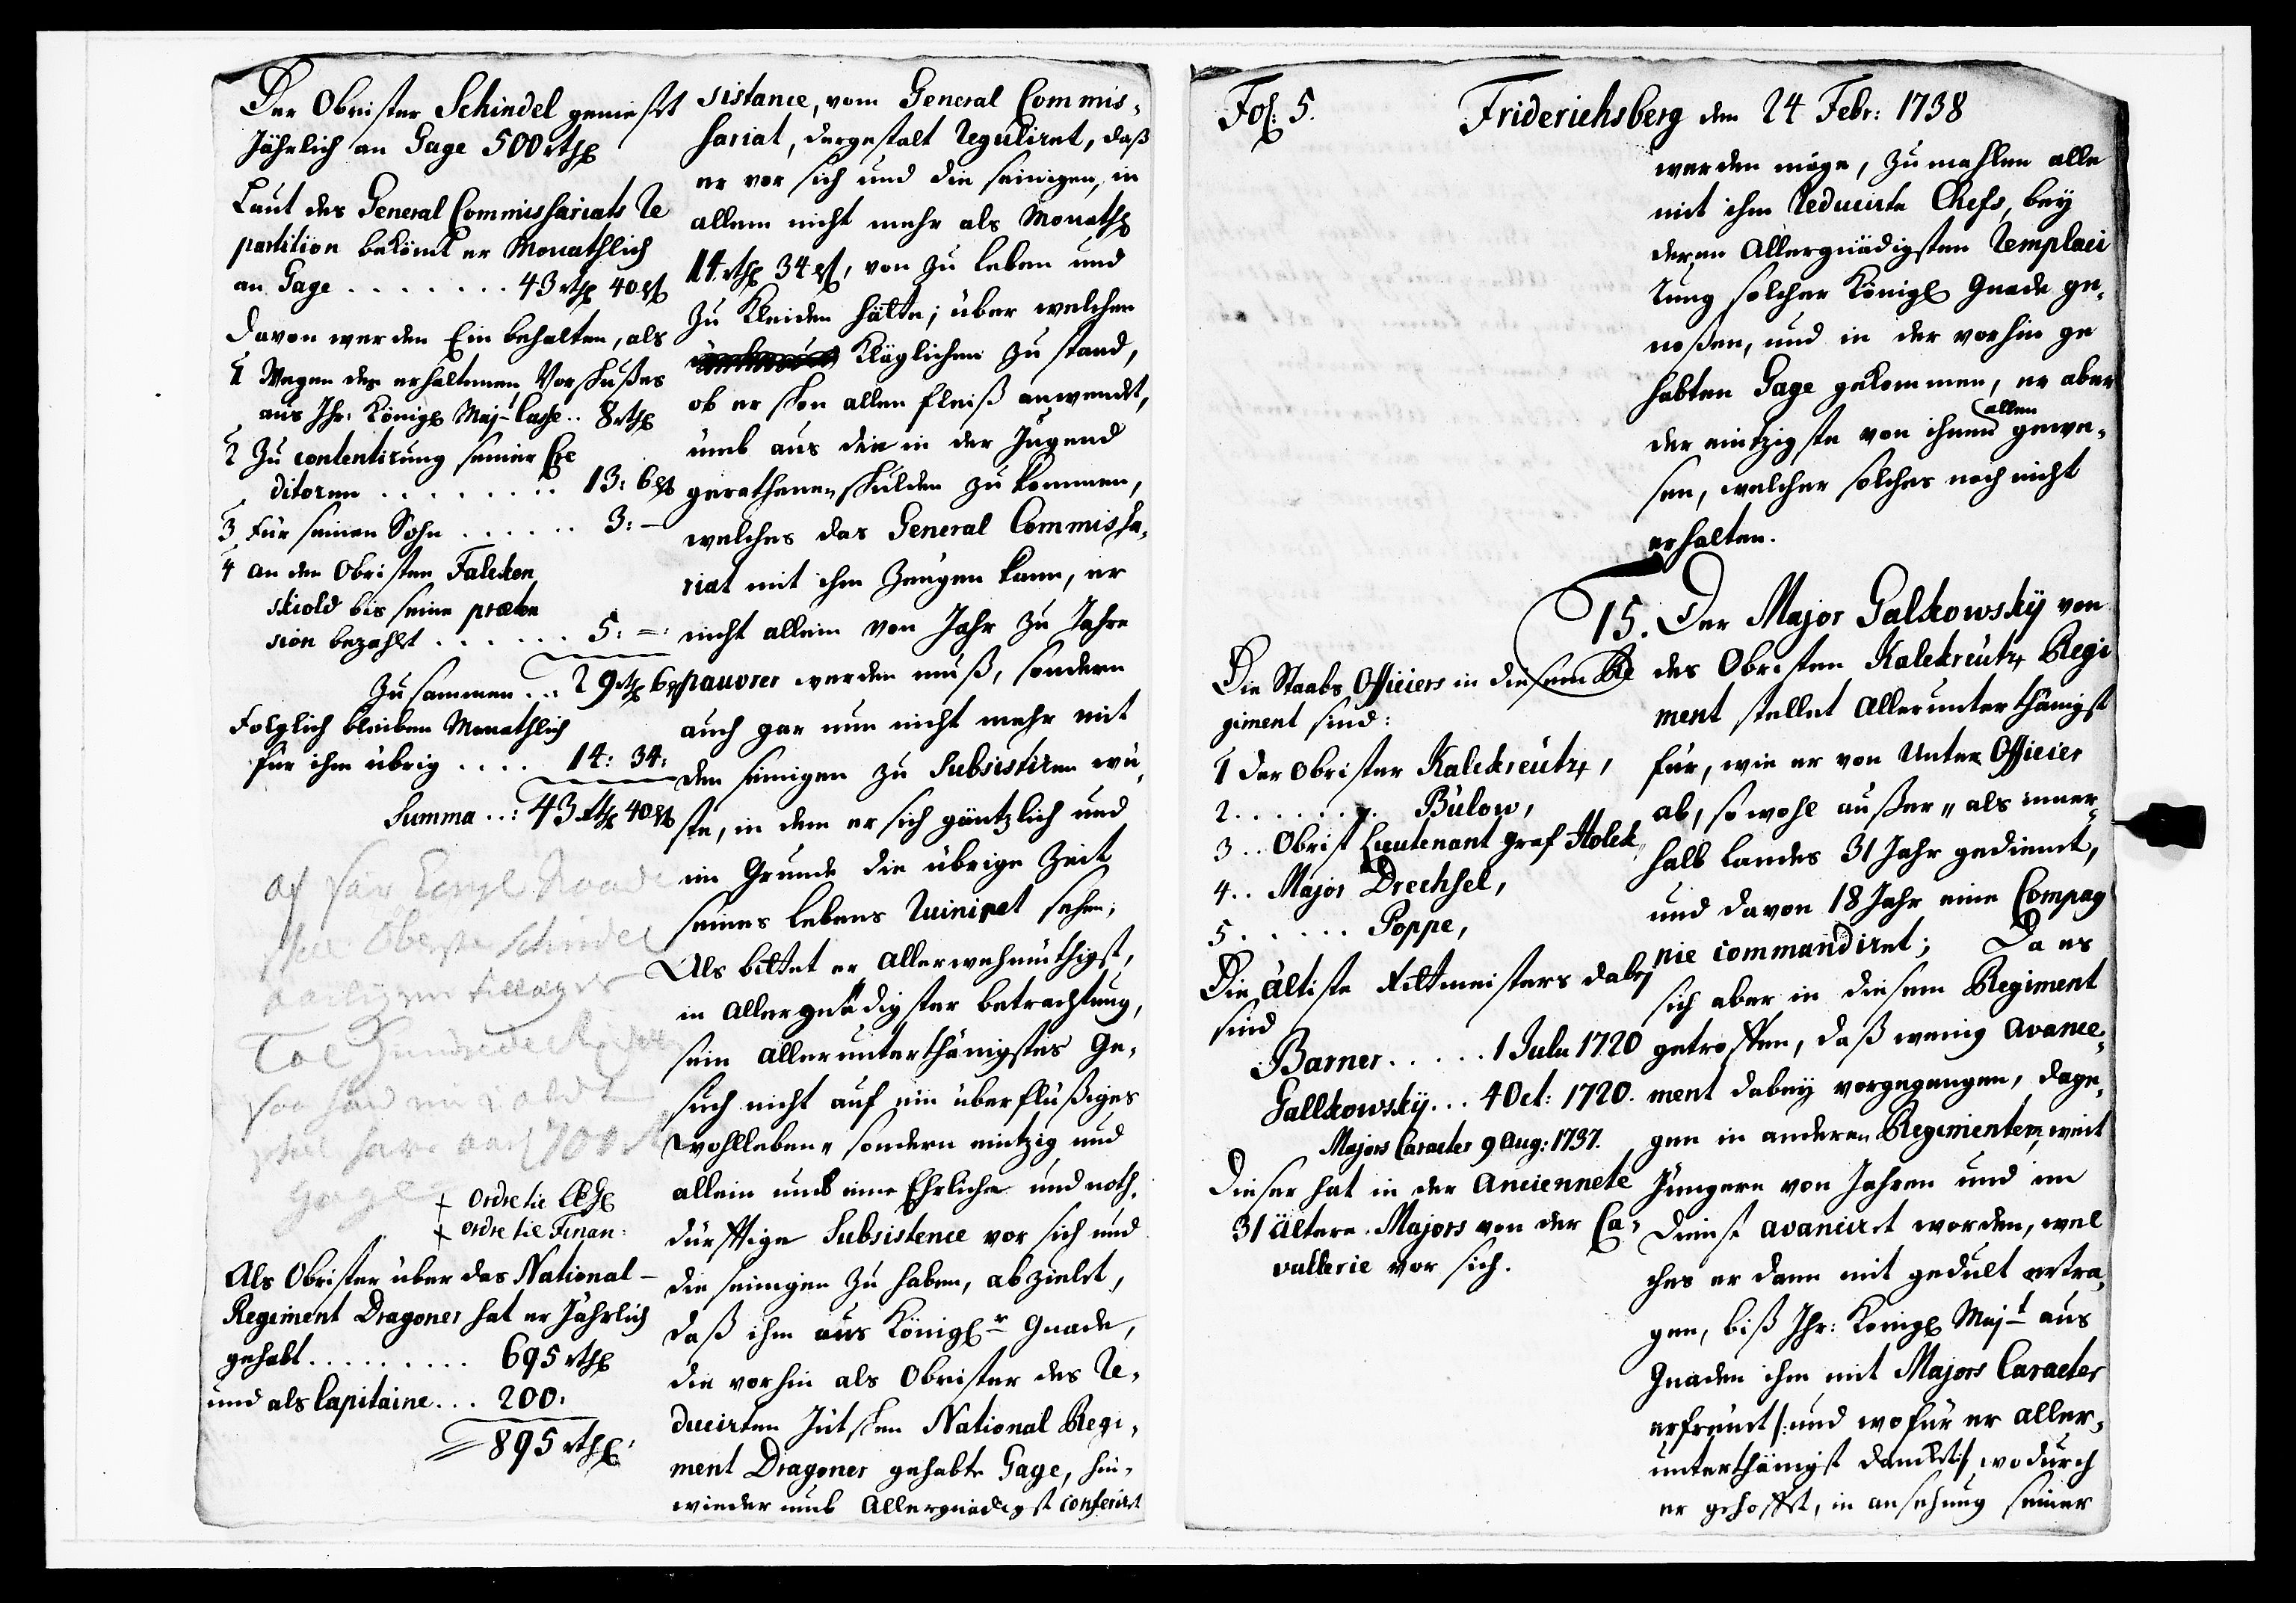 Der Obrister Schindel genießt
Jährlich an Gage 500 rthl
Laut des General Commissariats Re
partition bekömt er Monathlich
an Gage . . . . . . . . 43 rthl 40 ß
Davon werden Ein behalten, als
1 Wegen des erhaltenen Vorschußes
aus Ihr: Königl Maj- Casse . . 8 rthl
2 Zu contentirung seiner Cre
ditoren . . . . . . . . 13: 6 ß
3 Für seinen Sohn . . . . . . 3: —
4 an den Obristen Falcken
skiold bis seine præten
sion bezahlt . . . . . . 5: =:
Zusammen . . : 29 rthl 6 ß
Folglich bleiben Monathlich
für ihm übrig . . . . 14: 34:
Summa . . : 43 rthl 40 ß
Oberste Schindel
700
† Ordre til
† Ordre til Finan:
Als Obrister über das National-
Regiment Dragoner hat er Jährlich
gehabt . . . . . . . . . 695 rthl
und als Capitaine . . . 200:
895 rthl:
sistance, vom General Commis,
sariat, dergestalt Reguliret, daß
er vor sich und die seinigen, in
allem nicht mehr als Monathl
14 rthl 34 ß, von zu leben und
zu Kleiden hätte; über welchen
Kläglichen zu stand,
ob er schon allen fleiß anwendet,
umb aus die in der Jugend
gerathenen schulden zu kommen,
welches das General Commissa,
riat mit ihm Zeugen kann, er
nicht allein von Jahr zu Jahre
pauvrer werden muß, sondern
auch gar nun nicht mehr mit
den seinigen zu Subsistiren wü,
ste, in dem er sich gäntzlich und
im Grunde die übrige Zeit
seines lebens Ruiniret sehen;
Als bittet er allerwehmüthigst,
in Allergnädigster betrachtung,
sein allerunterthänigstes Ge,
such nicht auf ein überflüßiges
wohlleben„ sondern eintzig und
allein umb eine Ehrliche und noth,
dürfftige Subsistence vor sich und
die seinigen zu haben, abzielet,
daß ihm aus Königl r Gnade,
die vorhin als Obrister des Re,
ducirten Jütschen National Regi,
ment Dragoner gehabte Gage, hin,
wieder umb Allergnädigst conferiret
Fol: 5. Friderichsberg den 24 Febr: 1738
werden möge, zumahlen alle
mit ihm Reducirte Chefs, bey
deren Allergnädigsten Remplaci
rung solcher Königl Gnade ge,
noßen, und in der vorhin ge
habten Gage gekommen, er aber
der eintzigste von ihnen allen gewe,
sen, welcher solches noch nicht
erhalten.
15. Der Major Galkowsky von
des Obristen Kalckreutz Regi
ment stellet Allerunterthänigst
für, wie er von Unter Officier
ab, so wohl außer„ als inner,
halb Landes 31 Jahr gedienet,
und davon 18 Jahr eine Compag
nie commandiret; Da es
sich aber in diesem Regiment
getroffen, daß wenig avance,
ment dabey vorgegangen, dage,
gen in anderen Regimentern, weit
Jüngere von Jahren und im
Dienst avanciret worden, wel
ches er dann mit gedult ertra,
gen, biß Ihr: Königl Maj t aus
Gnaden ihm mit Majors Caracter
erfreuet /: und wofür er aller,
unterthänigst dancket :/ wodurch
er gehoffet, in ansehung seiner
Die Staabs Officiers in diesem Re
giment sind:
1 der Obrister Kalckreutz,
2 . . . . . . . Bülow,
3 . . Obrist Lieutenant Graf Holck,
4 . . Major Drechsel,
5 . . . . . . Poppe,
Die ältiste Rittmeisters dabey
sind
Barner . . . . . 1 Julii 1720
Gallkowsky . . . 4 Oct: 1720.
Majors Caracter 9 Aug: 1737.
Dieser hat in der Anciennete
31 ältere Majors von der Ca,
vallerie vor sich.